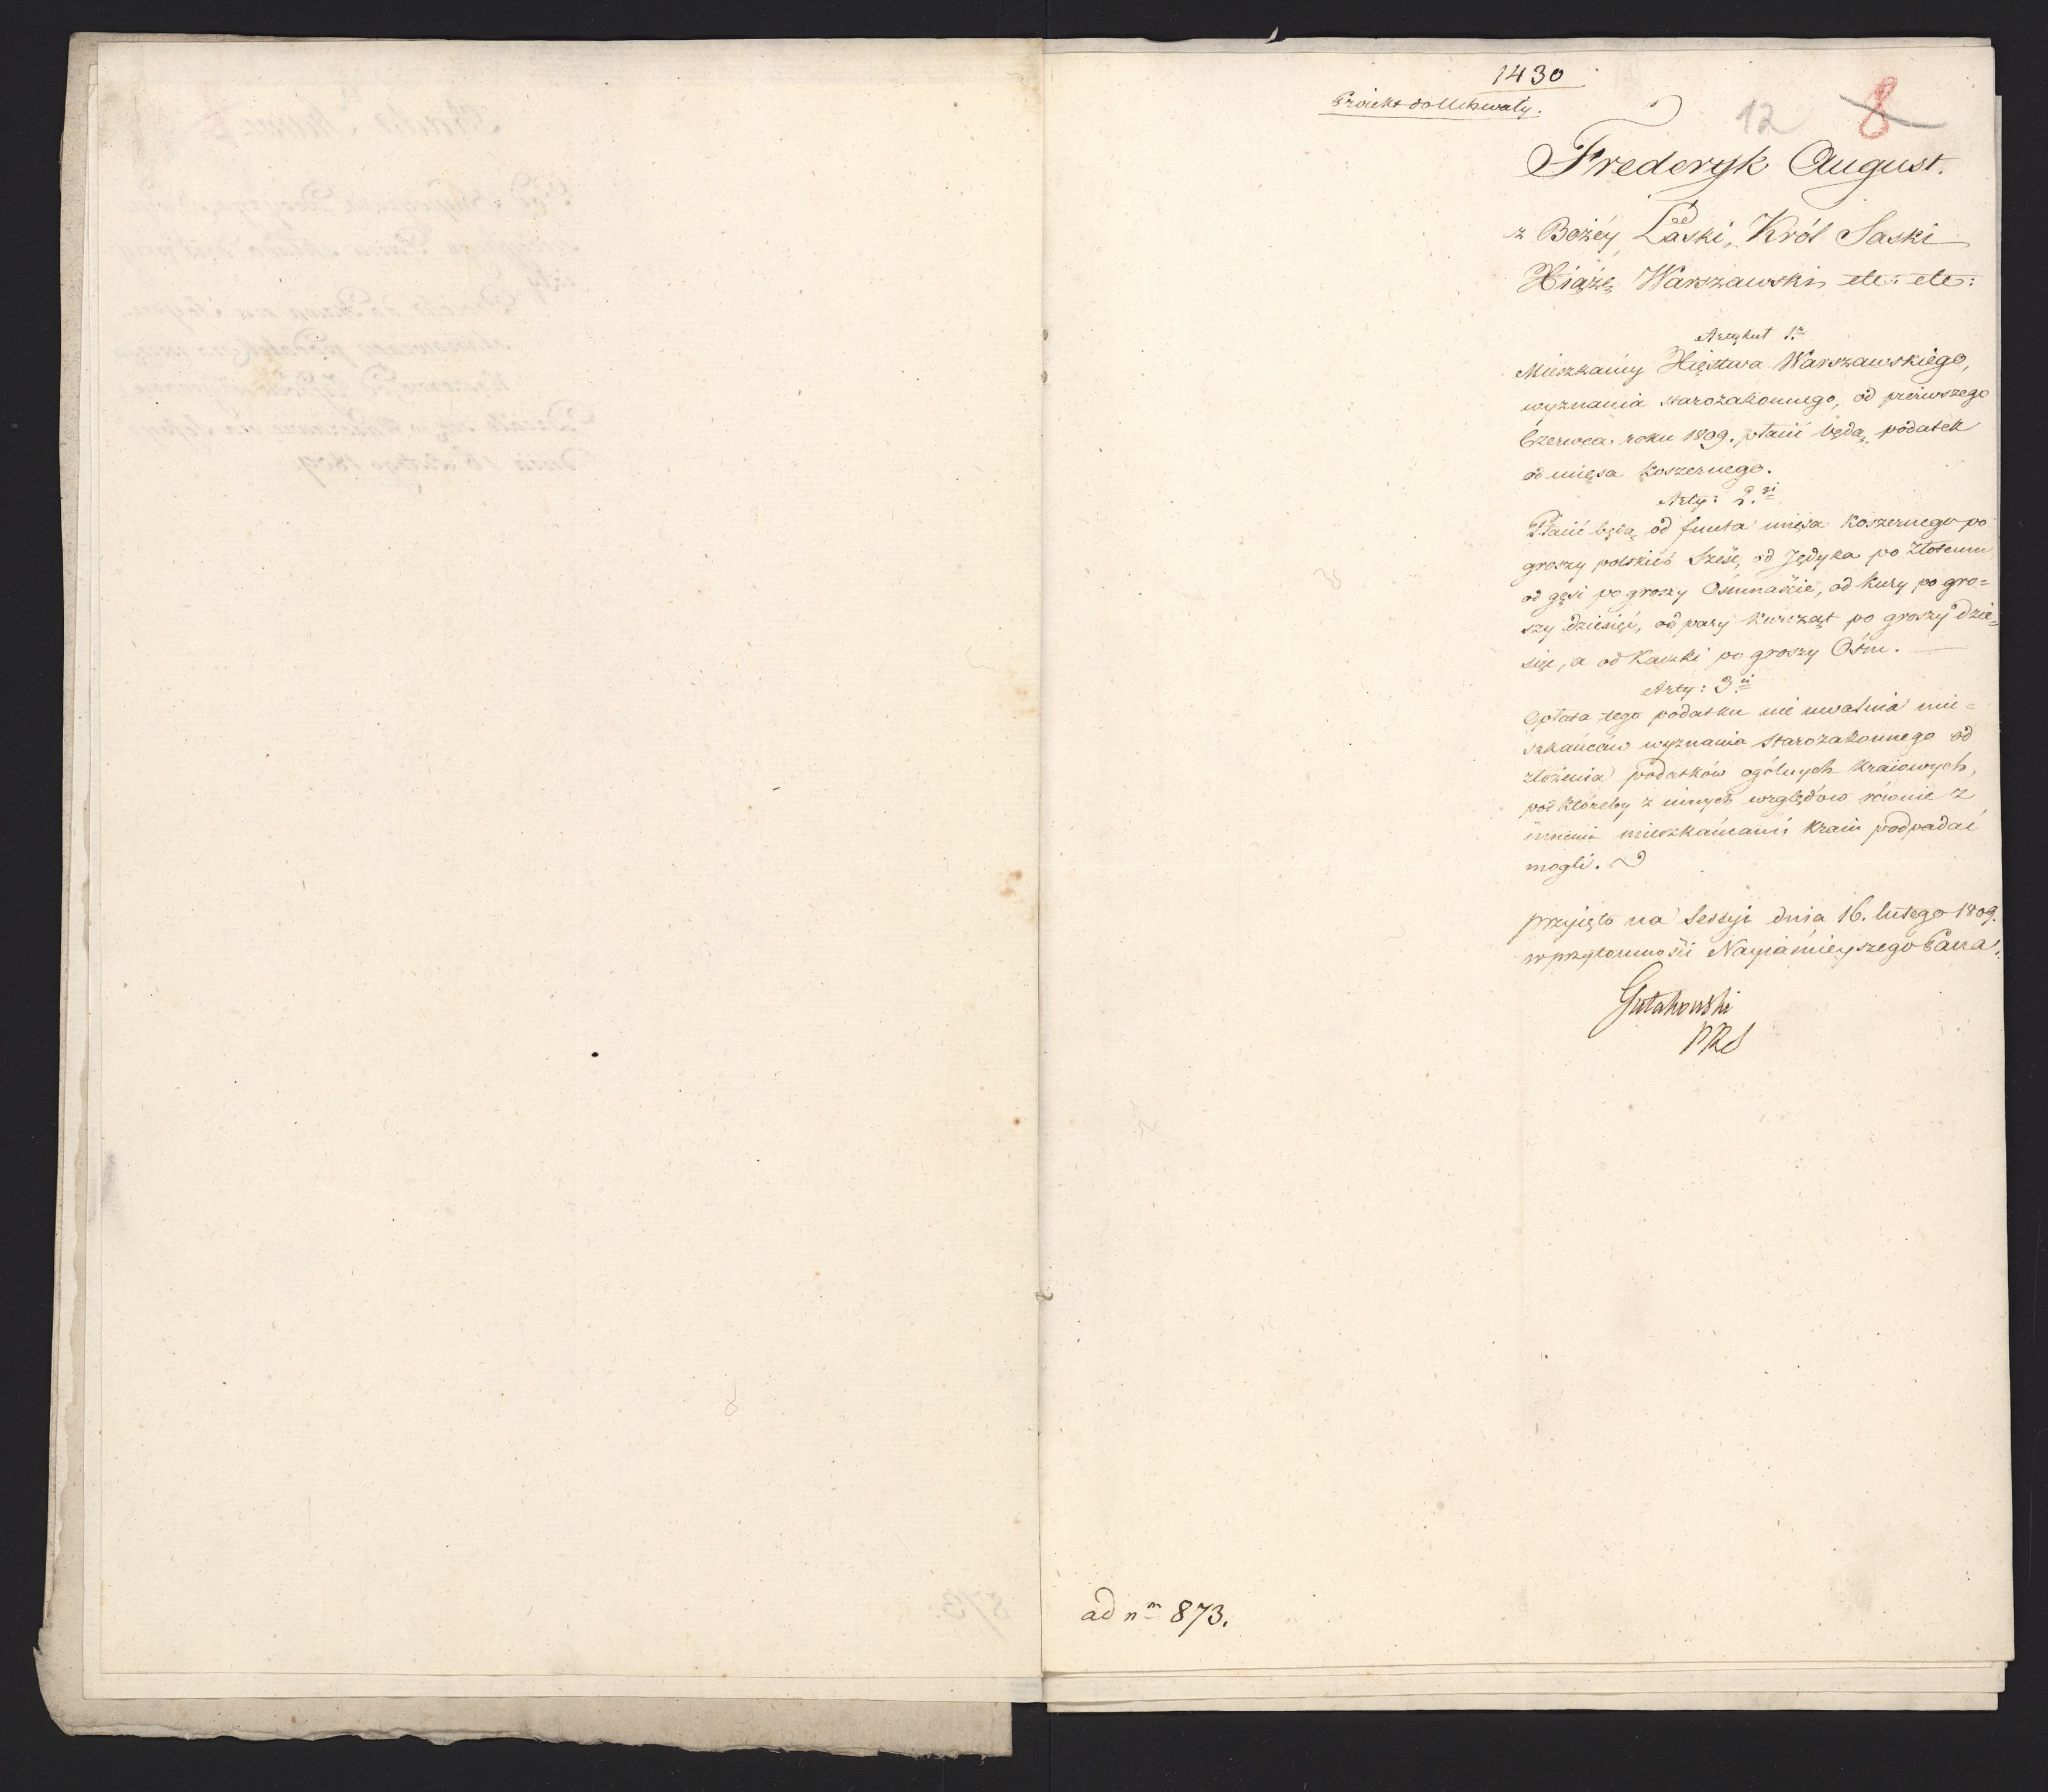 1430
Proiekt do Uchwały.
12 8
Frederyk August.
z Bożéy Łaski, Król Saski
Xiążę Warszawski etc: etc:
Artykuł 1.
Mieszkańcy Xięstwa Warszawskiego,
wyznania starozakonnego, od pierwszego
Czerwca roku 1809. płacić będą podatek
od mięsa koszernego.
Arty: 2.gi
Płacić będą od funta mięsa koszernego po
groszy polskich sześć, od Jędyka po złotemu
od gęsi po groszy Ośmnaście, od kury po gro=
szy dziesięć, od pary kurcząt po groszy dzie=
sięć, a od kaczki po groszy Ośm.
Arty: 3.ci
Opłata tego podatku nie uwalnia mie=
szkańców wyznania starozakonnego od
złożenia podatków ogólnych kraiowych,
pod któreby z innych względów równie z
innemi mieszkańcami kraiu podpadać
mogli.
przyięto na Sessyi dnia 16. lutego 1809.
w przytomności Nayiaśnieyszego Pana.
Gutakowski
PRS
ad nm 873.